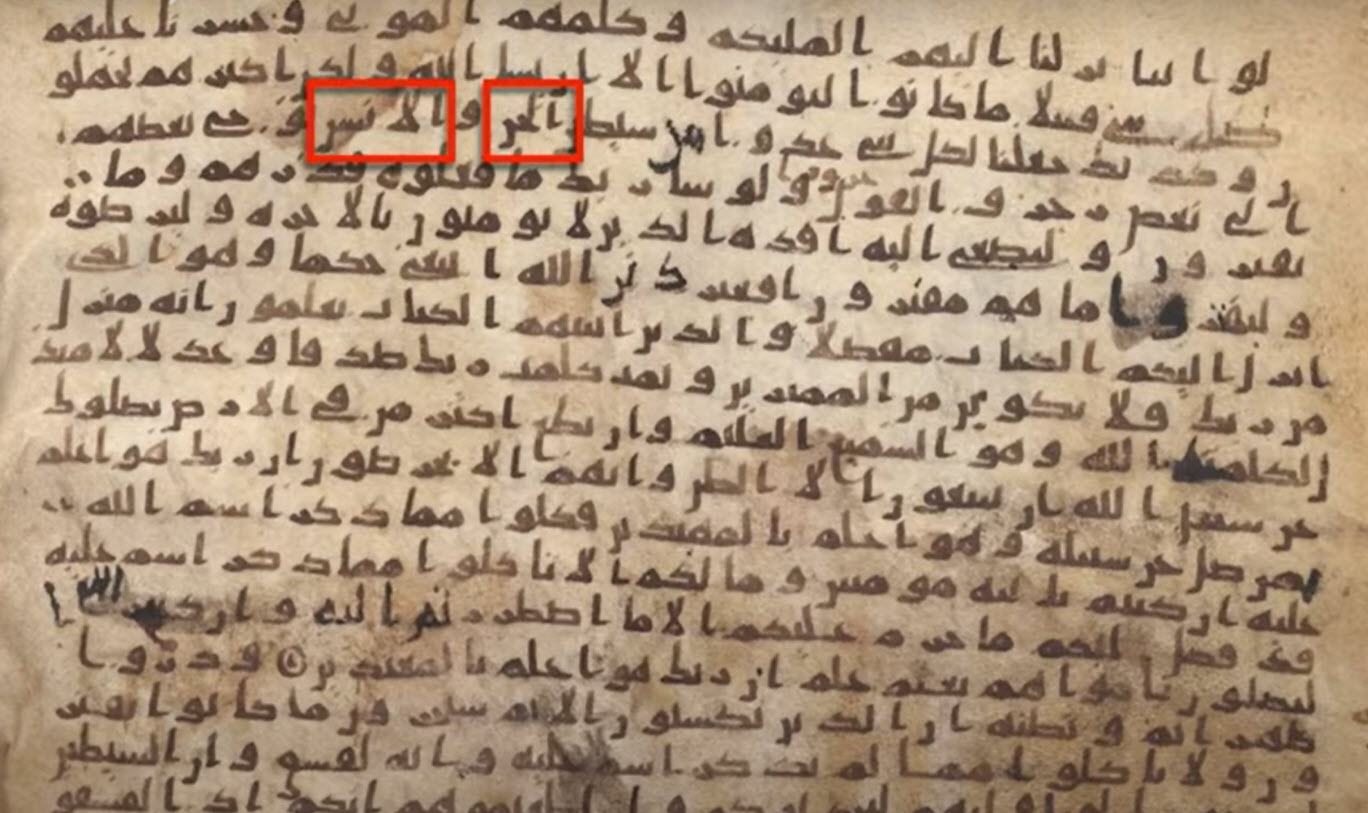 لو اننا نزلنا اليهم المليكه وكلمهم الموتى وحشرنا عليهم
كل شى قبلا ما كانوا ليومنوا الا ان يشا الله ولكن اكثرهم يجهلو
ن وكذلك جعلنا لكل نبى عدوا شيطين الجن والانس يوحى بعضهم
الى بعض زخرف القول غرورا ولو شا ربك ما فعلوه فذرهم وما
يفترون ولتصغى اليه افده الذين لا يومنون بالاخره وليرضوه
وليقترفوا ما هم مقترفون افغير الله ابتغى حكما وهو الذى
انزل اليكم الكتاب مفصلا والذين اتينهم الكتاب يعلمون انه منزل
من ربك فلا تكونن من الممترين وتمت كلمت ربك صدقا وعدلا لا مبد
ل لكلمته وهو السميع العليم وان تطع اكثر من فى الارض يضلوك
عن سبيل الله ان يتبعون الا الظن وان هم الا يخرصون ان ربك هو اعلم
من يضل عن سبيله وهو اعلم بالمهتدين فكلوا مما ذكر اسم الله
عليه ان كنتم بايته مومنين وما لكم الا تاكلوا مما ذكر اسم عليه
وقد فصل لكم ما حرم عليكم الا ما اضطررتم اليه وان كثيرا
ليضلون باهوايهم بغير علم ان ربك هو اعلم بالمعتدين وذروا
ظهر الاثم وبطنه ان الذين يكسبون الاثم سيجزون بما كانوا يقتر
فون ولا تاكلوا مما لم يذكر اسم عليه وانه لفسق وان الشيطين